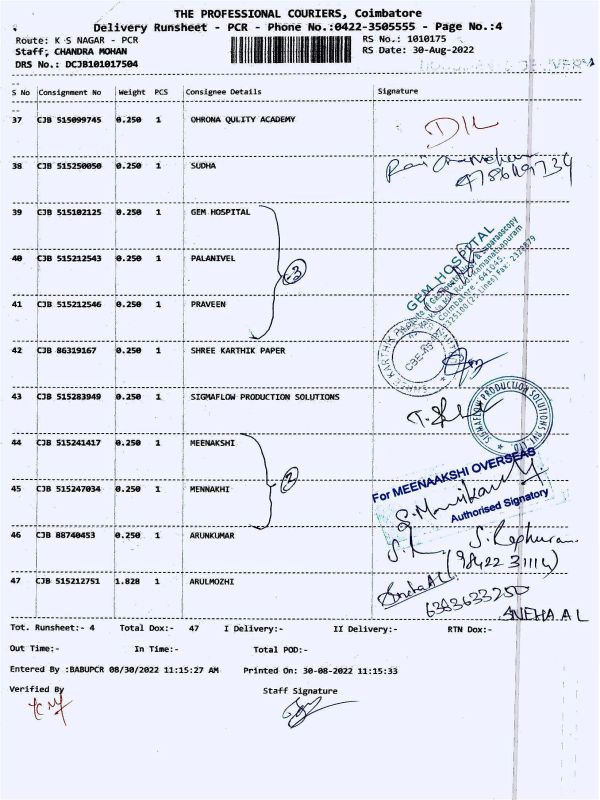 THE PROFESSIONAL COURIERS, Coimbatore
Delivery Runsheet - PCR - Phone No.:0422-3505555 - Page No.:4
Route: K S NAGAR - PCR
RS No.: 1010175
Staff: CHANDRA MOHAN
RS Date: 30-Aug-2022
DRS No.: DCJB101017504
S No Consignment No Weight PCS Consignee Details Signature
37 CJB 515099745 0.250 1 OHRONA QULITY ACADEMY
38 CJB 515250050 0.250 1 SUDHA
39 CJB 515102125 0.250 1 GEM HOSPITAL
GEM HOSPITAL
40 CJB 515212543 0.250 1 PALANIVEL
3
41 CJB 515212546 0.250 1 PRAVEEN
42 CJB 86319167 0.250 1 SHREE KARTHIK PAPER
43 CJB 515283949 0.250 1 SIGMAFLOW PRODUCTION SOLUTIONS
SIGMAFLOW PRODUCTION SOLUTIONS PVT
44 CJB 515241417 0.250 1 MEENAKSHI
For MEENAAKSHI OVERSEAS
2
45 CJB 515247034 0.250 1 MENNAKHI
Authorised Signatory
46 CJB 88740453 0.250 1 ARUNKUMAR
(98422 31114)
47 CJB 515212751 1.828 1 ARULMOZHI
Sneha A L
6383633250
SNEHA A L
Tot. Runsheet:- 4 Total Dox:- 47 I Delivery:- II Delivery:- RTN Dox:-
Out Time:- In Time:- Total POD:-
Entered By :BABUPCR 08/30/2022 11:15:27 AM Printed On: 30-08-2022 11:15:33
Verified By Staff Signature